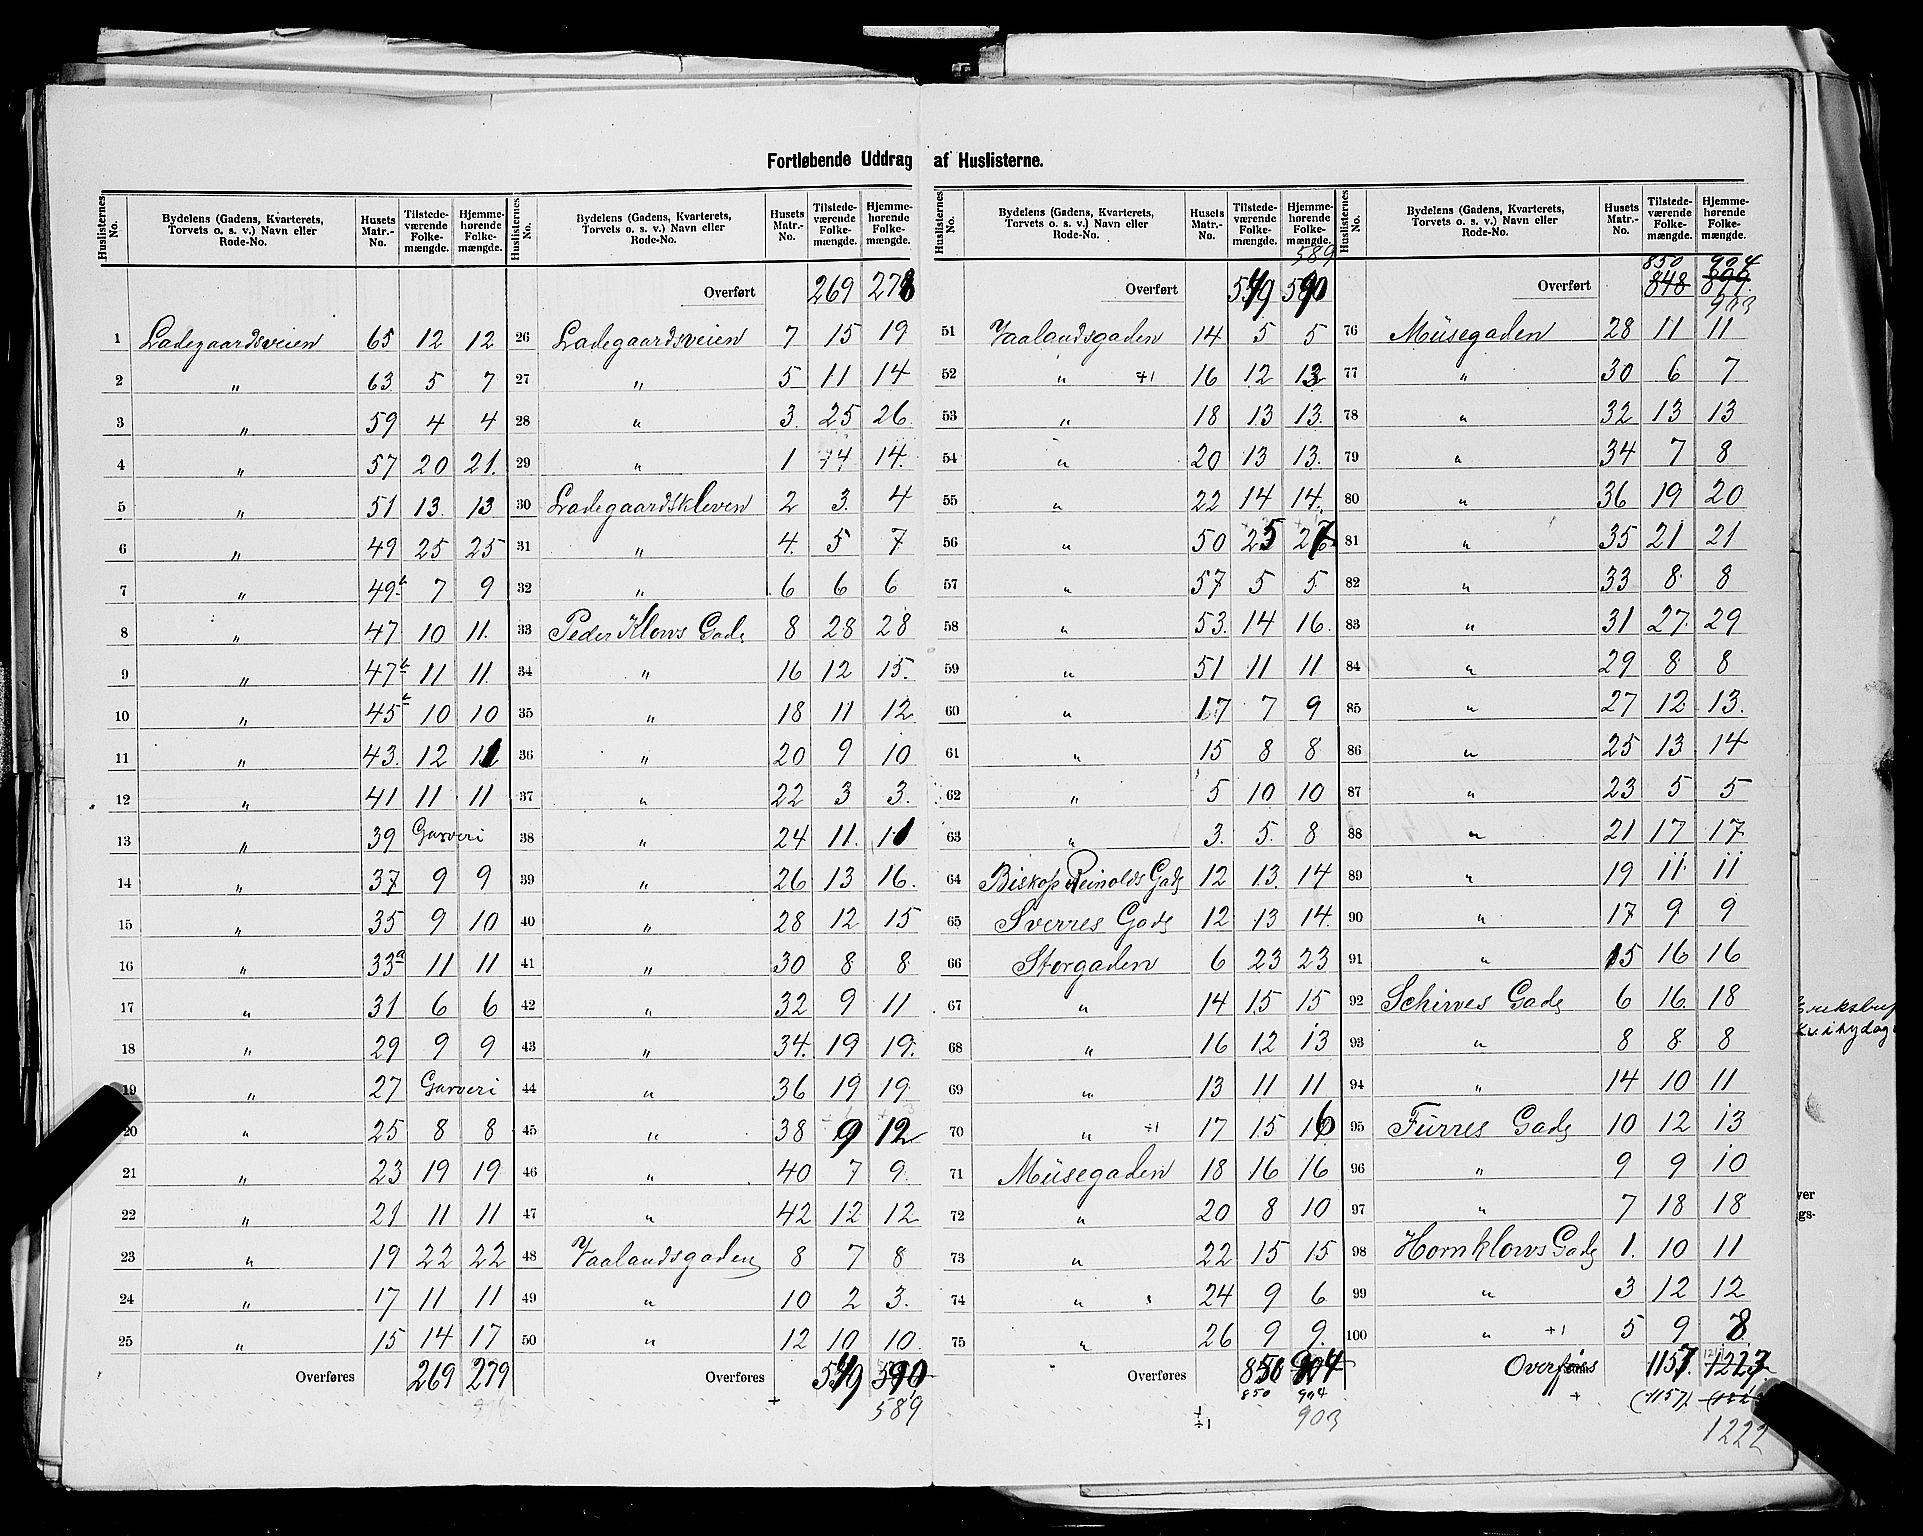 Fortløbende Uddrag af Huslisterne.
Huslisternes No. | Bydelens (Gadens, Kvarterets, Torvets o. s. v.) Navn eller Rode-No. | Husets Matr.-No. | Tilstedeværende Folkemængde. | Hjemmehørende Folkemængde.
1 Ladegaardsveien 65 12 12
2 „ 63 5 7
3 „ 59 4 4
4 „ 57 20 21.
5 „ 51 13. 13
6 „ 49 25 25
7 „ 49b 7 9
8 „ 47 10 11.
9 „ 47b 11 11.
10 „ 45b 10 10
11 „ 43. 12 11
12 „ 41 11 11
13 „ 39 Garveri
14 „ 37 9 9
15 „ 35 9 10
16 „ 33a 11 11
17 „ 31 6 6
18 „ 29 9 9
19 „ 27 Garveri
20 „ 25 8 8
21 „ 23 19 19
22 „ 21 11 11
23 „ 19 22 22
24 „ 17 11 11
25 „ 15 14 17
Overføres 269 279
Huslisternes No. | Bydelens (Gadens, Kvarterets, Torvets o. s. v.) Navn eller Rode-No. | Husets Matr.-No. | Tilstedeværende Folkemængde. | Hjemmehørende Folkemængde.
Overført 269 278
26 Ladegaardsveien 7 15 19
27 „ 5 11 14
28 „ 3. 25 26.
29 „ 1 14 14.
30 Ladegaardskleven 2 3. 4
31 „ 4. 5 7
32 „ 6 6 6
33 Peder Klows Gade 8 28 28
34 „ 16 12 15.
35 „ 18 11 12
36 „ 20 9 10
37 „ 22 3 3.
38 „ 24 11. 11
39 „ 26 13 16.
40 „ 28 12 15
41 „ 30 8 8
42 „ 32 9 11
43 „ 34. 19 19.
44 „ 36 19 19
45 „ 38 9 12
46 „ 40 7 9.
47 „ 42 12 12
48 Vaalandsgaden 8 7 8
49 „ 10 2 3.
50 „ 12 10 10.
Overføres 549 590
+ 589
Huslisternes No. | Bydelens (Gadens, Kvarterets, Torvets o. s. v.) Navn eller Rode-No. | Husets Matr.-No. | Tilstedeværende Folkemængde. | Hjemmehørende Folkemængde.
589
Overført 549 590
51 Vaalandsgaden 14 5 5
52 „ ÷1 16 12 13
53 „ 18 13 13.
54 „ 20 13 13.
55 „ 22 14 14.
56 „ 50 25 27
57 „ 57 5 5
58 „ 53. 14 16.
59 „ 51 11 11
60 „ 17 7 9
61 „ 15 8 8
62 „ 5 10 10
63 „ 3. 5. 8
64 Biskop Reinolds Gade 12 13. 14
65 Sverres Gade 12 13 14.
66 Storgaden 6 23 23
67 „ 14 15 15
68 „ 16 12 13
69 „ 13 11 11
70 „ ÷1 17 15 16
71 Müsegaden 18 16 16
72 „ 20 8 10
73 „ 22 15 15
74 „ 24 9 6
75 „ 26 9 9.
Overføres 850 904
850 904
÷1 903
Huslisternes No. | Bydelens (Gadens, Kvarterets, Torvets o. s. v.) Navn eller Rode-No. | Husets Matr.-No. | Tilstedeværende Folkemængde. | Hjemmehørende Folkemængde.
850 904
Overført 848
903
76 Müsegaden 28 11 11
77 „ 30 6 7
78 „ 32 13 13
79 „ 34 7 8
80 „ 36 19 20
81 „ 35 21 21
82 „ 33 8 8
83 „ 31 27. 29
84 „ 29 8 8
85 „ 27 12 13.
86 „ 25 13 14
87 „ 23 5 5
88 „ 21 17 17
89 „ 19 11 11
90 „ 17 9 9
91 „ 15 16 16
92 Schives Gade 6 16 18
93 „ 8 8 8
94 „ 14 10 11
95 Fürres Gade 10 12 13
96 „ 9 9 10
97 „ 7 18 18
98 Hornklows Gade 1. 10 11
99 „ 3 12 12
100 „ ÷1 5 9 8
Overføres 1157.
+ (1157).
1222